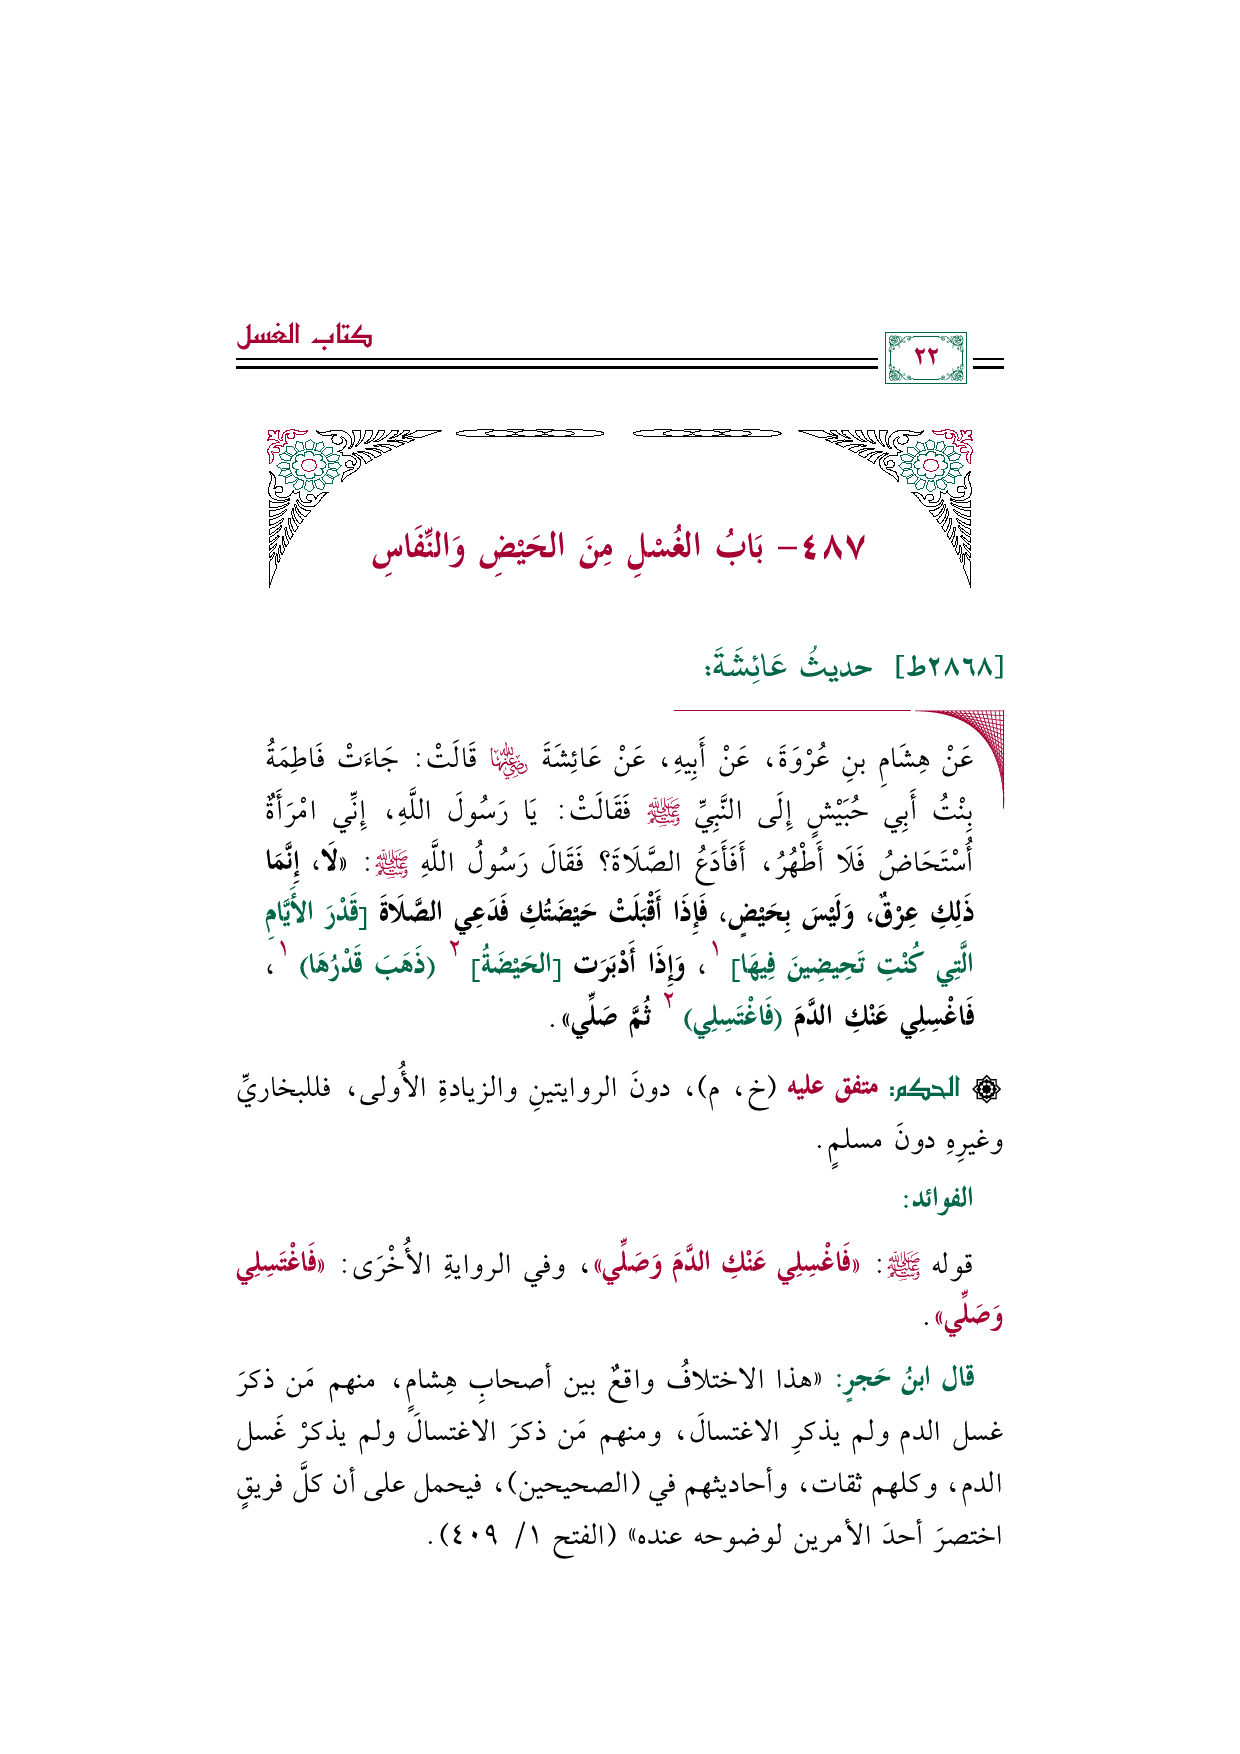 كتاب الغسل
٢٢
٤٨٧- بَابُ الغُسْلِ مِنَ الحَيْضِ وَالنِّفَاسِ
[٢٨٦٨ط] حديثُ عَائِشَةَ:
عَنْ هِشَامِ بنِ عُرْوَةَ، عَنْ أَبِيهِ، عَنْ عَائِشَةَ رضي الله عنها قَالَتْ: جَاءَتْ فَاطِمَةُ
بِنْتُ أَبِي حُبَيْشٍ إِلَى النَّبِيِّ ﷺ فَقَالَتْ: يَا رَسُولَ اللَّهِ، إِنِّي امْرَأَةٌ
أُسْتَحَاضُ فَلَا أَطْهُرُ، أَفَأَدَعُ الصَّلَاةَ؟ فَقَالَ رَسُولُ اللَّهِ ﷺ: «لَا، إِنَّمَا
ذَلِكِ عِرْقٌ، وَلَيْسَ بِحَيْضٍ، فَإِذَا أَقْبَلَتْ حَيْضَتُكِ فَدَعِي الصَّلَاةَ [قَدْرَ الأَيَّامِ
الَّتِي كُنْتِ تَحِيضِينَ فِيهَا]١، وَإِذَا أَدْبَرَت [الحَيْضَةُ]٢ (ذَهَبَ قَدْرُهَا)١،
فَاغْسِلِي عَنْكِ الدَّمَ (فَاغْتَسِلِي)٢ ثُمَّ صَلِّي».
الحكم: متفق عليه (خ، م)، دونَ الروايتينِ والزيادةِ الأُولى، فللبخاريِّ
وغيرِهِ دونَ مسلمٍ.
الفوائد:
قوله ﷺ: «فَاغْسِلِي عَنْكِ الدَّمَ وَصَلِّي»، وفي الروايةِ الأُخْرَى: «فَاغْتَسِلِي
وَصَلِّي».
قال ابنُ حَجرٍ: «هذا الاختلافُ واقعٌ بين أصحابِ هِشامٍ، منهم مَن ذكرَ
غسل الدم ولم يذكرِ الاغتسالَ، ومنهم مَن ذكرَ الاغتسالَ ولم يذكرْ غَسل
الدم، وكلهم ثقات، وأحاديثهم في (الصحيحين)، فيحمل على أن كلَّ فريقٍ
اختصرَ أحدَ الأمرين لوضوحه عنده» (الفتح ١/ ٤٠٩).